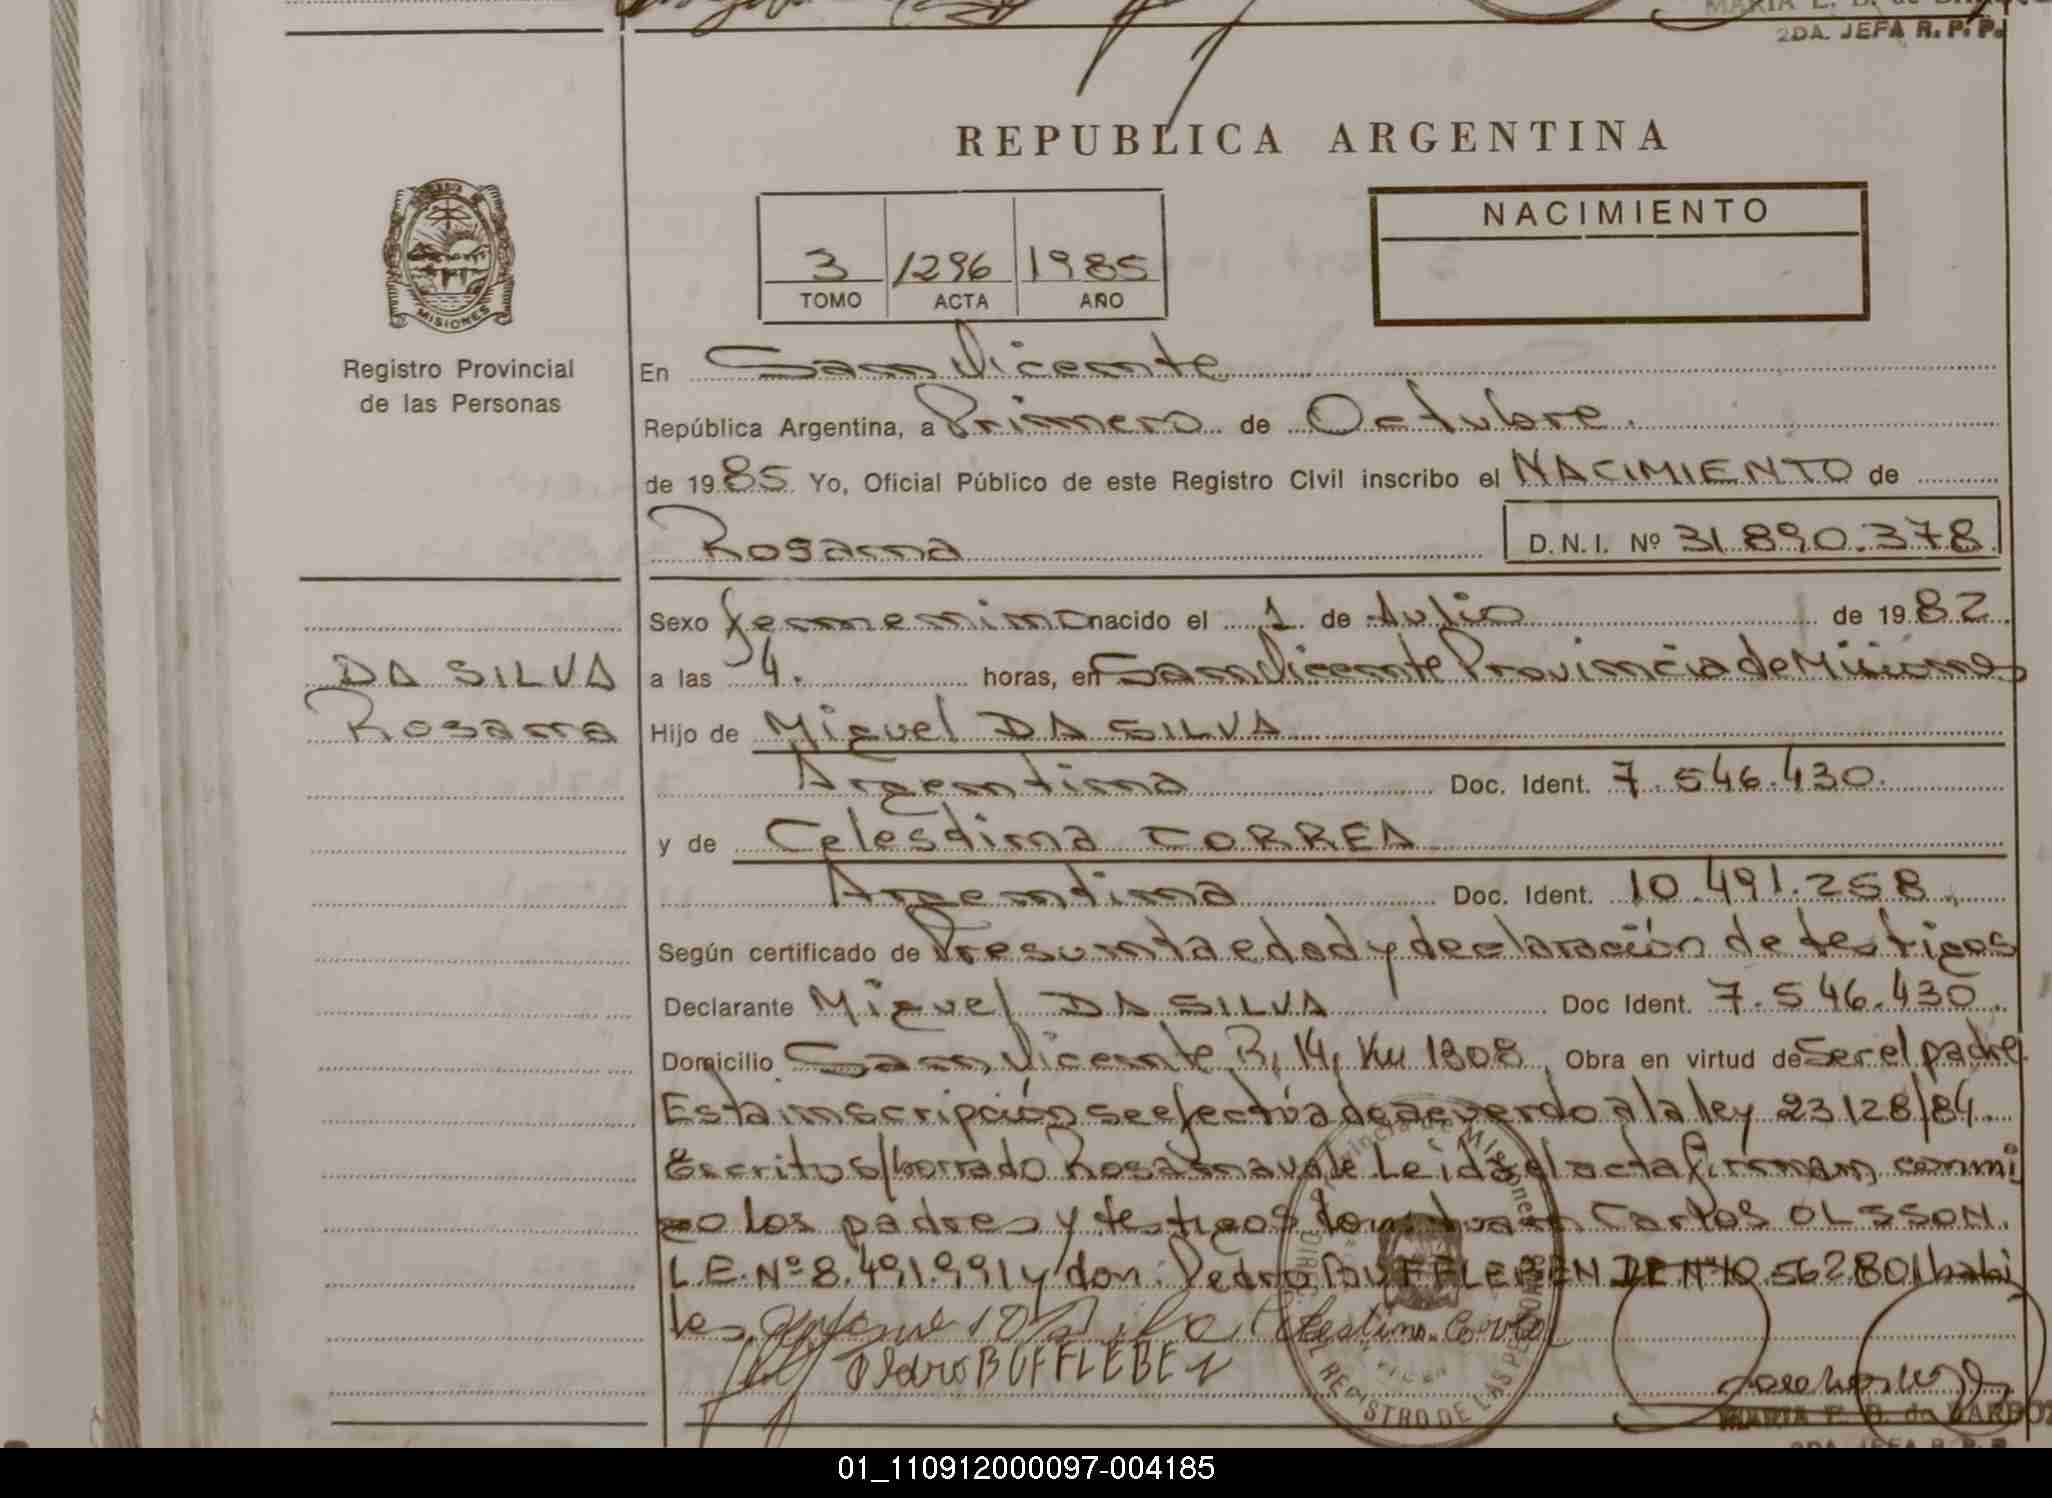 MARIA E. B. de
2DA. JEFA R. P. P.
REPUBLICA ARGENTINA
NACIMIENTO
3 1296 1985
TOMO ACTA AÑO
MISIONES
Registro Provincial
de las Personas
En San Vicente
República Argentina, a Primero de Octubre.
de 1985 Yo, Oficial Público de este Registro Civil inscribo el NACIMIENTO de
Rosana D.N.I. Nº 31.890.378
Sexo femenino nacido el 1 de Julio de 1982
DA SILVA
Rosana
a las 4. horas, en San Vicente Provincia de Misiones
Hijo de Miguel DA SILVA
Argentina Doc. Ident. 7.546.430.
y de Celestina CORREA
Argentina Doc. Ident. 10.491.258
Según certificado de Presunta edad y declaración de testigos
Declarante Miguel DA SILVA Doc Ident. 7.546.430
Domicilio San Vicente R, 14, Km 1308 Obra en virtud de Ser el padre
Esta inscripción se efectúa de acuerdo a la ley 23128/84.
Escrito s/borrado Rosana vale Leida el acta firman, conmi
go los padres y testigos don: Juan Carlos OLSSON.
L.E. Nº 8.491.991 y don: Pedro BUFFLEBEN IE Nº 10.562801 habi
les
Celestina Correa
Pedro BUFFLEBEN
REGISTRO DE LAS PERSONAS
MARIA E. B. de BARBOZ
2DA. JEFA R. P. P.
01_110912000097-004185